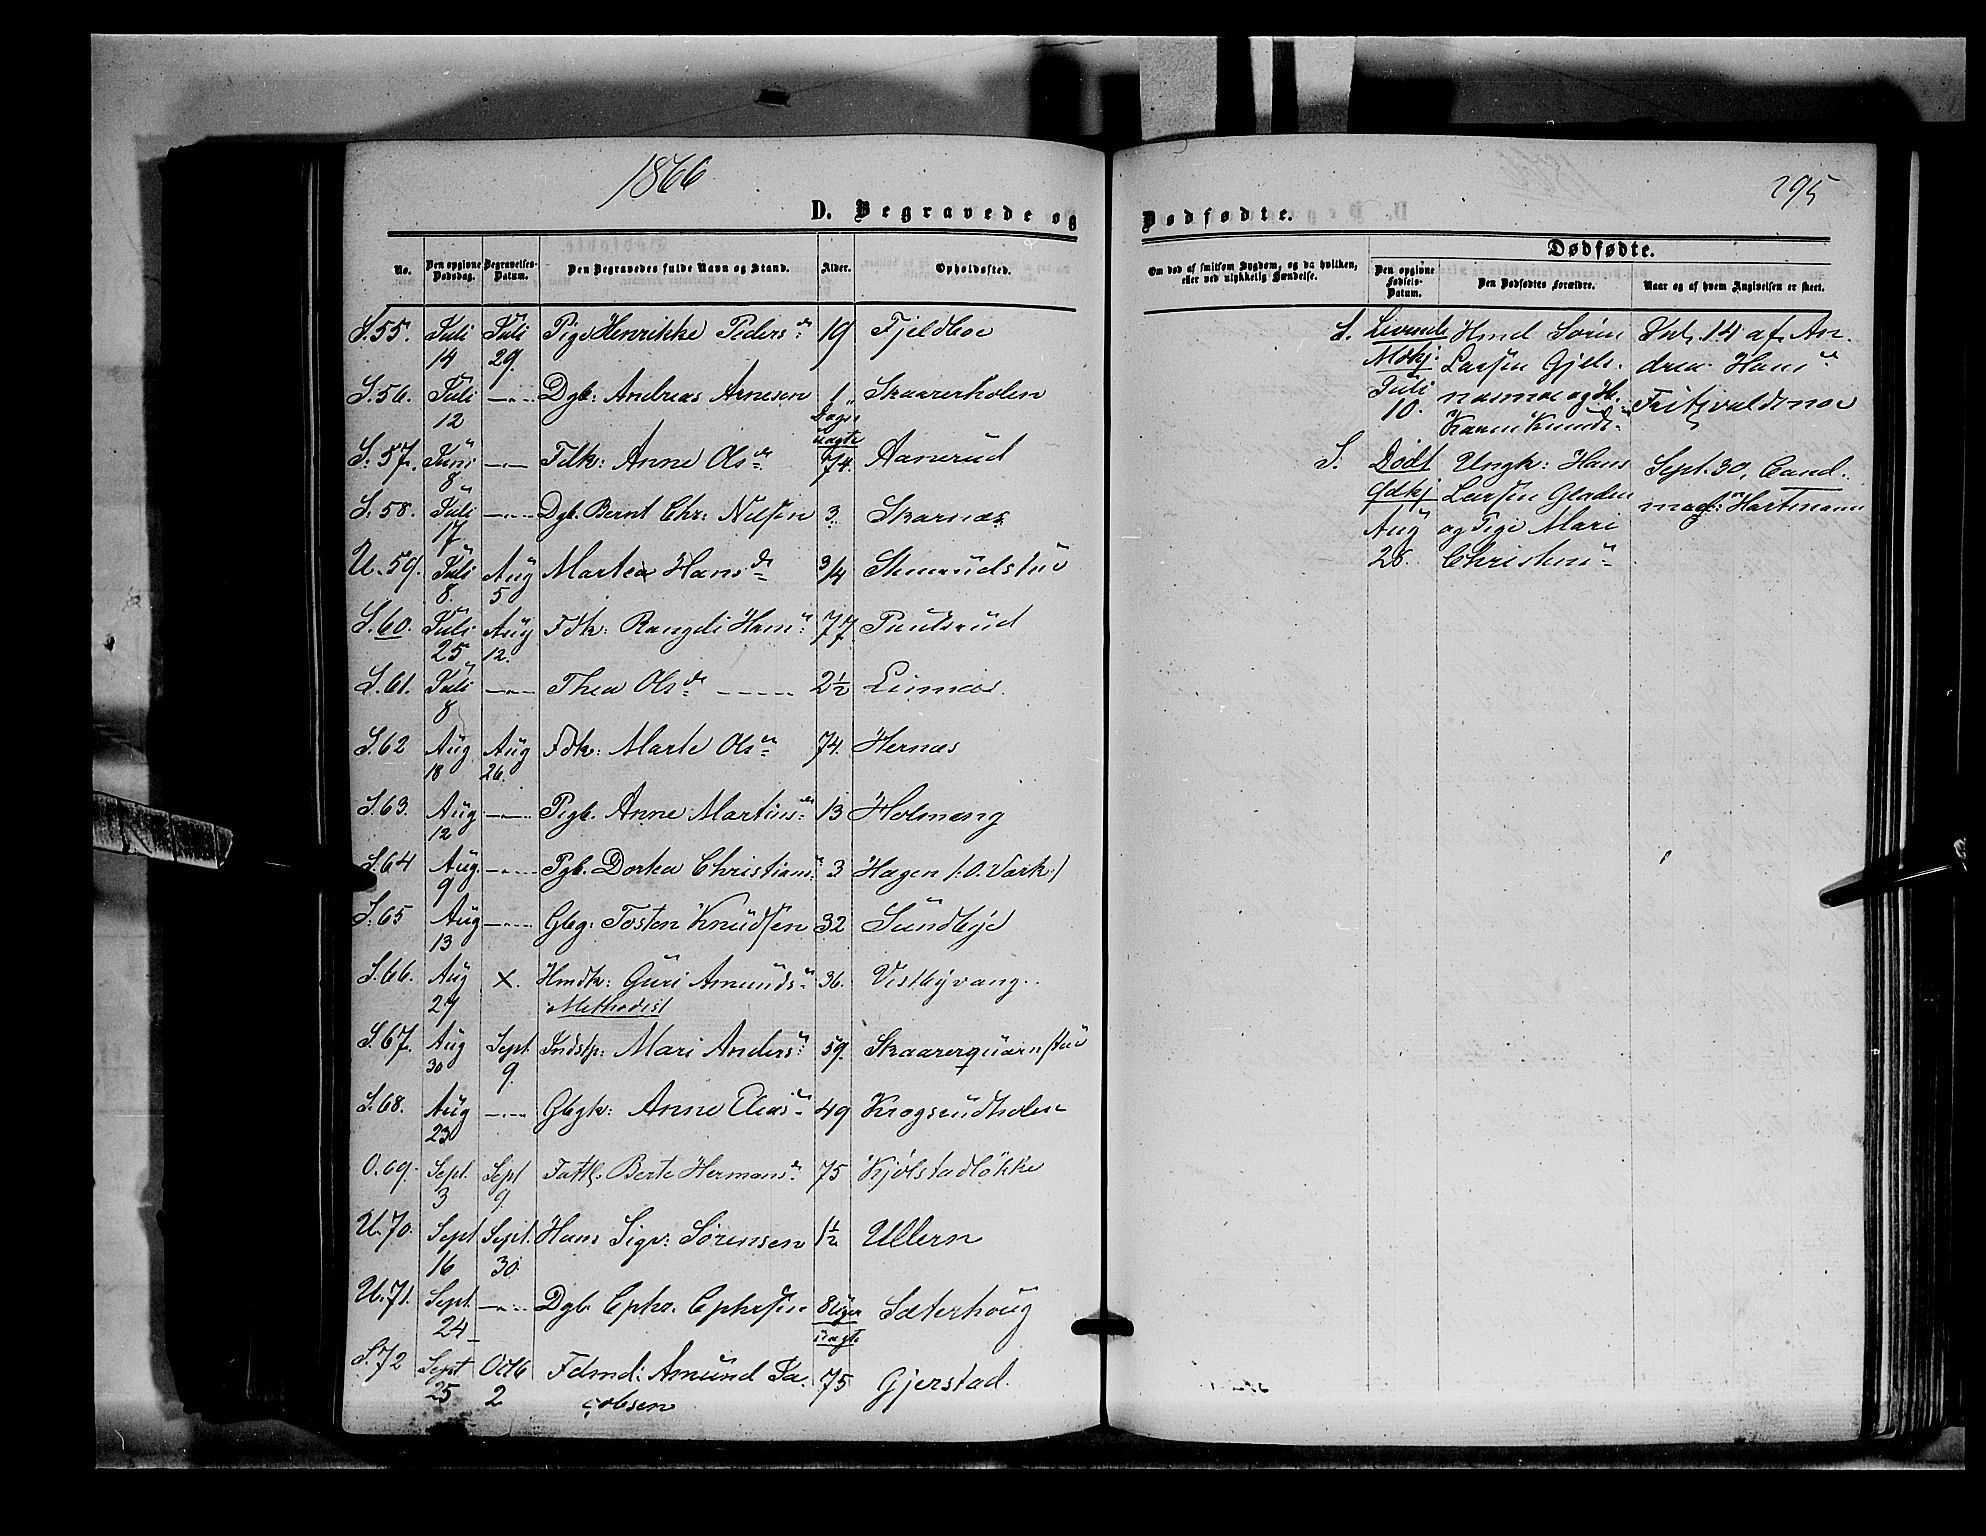 1866
295
D. Begravede og Dødfødte.
Dødfødte.
No. Den opgivne Dødsdag. Begravelses-Datum. Den Begravedes fulde Navn og Stand. Alder. Opholdssted.
Om død af smitsom Sygdom, og da hvilken, eller ved ulykkelig Hændelse. Den opgivne Fødsels-Datum. Den Dødfødtes Forældre. Naar og af hvem Angivelsen er skeet.
S. 55. Juli 14 Juli 29. Pige Henrikke Peders d. 19 Fjeldboe
S. 56. Juli 12 —"— Dgb: Andreas Arnesen 1 Dags uægte Skaarerholen
S. 57. Juni 8 —"— Fdk: Anne Ols d. 74. Aanerud
S. 58. Juli 17 —"— Dgb. Bernt Chr: Nilsen 3. Skarnæs
U. 59. Juli 8. Aug 5 Martea Hans d. 3/4 Stenrudstuv
S. 60. Juli 25 Aug 12. Fdk: Rangdi Hans d. 77. Paulsrud
S. 61. Juli 8 —"— Thea Ols d. 2 1/2 Linnæs.
S. 62 Aug 18 Aug 26. Fdk: Marte Ols d. 74. Hernæs
S. 63. Aug 12 —"— Pigb. Anne Martins d. 13 Holmeng
S. 64 Aug. 9 —"— Pgb. Dortea Christians d. 3 Hagen /: O. Værk :/
S. 65 Aug 13 —"— Gbg: Tosten Knudsen 32 Sundbye
S. 66. Aug 27 X. Hmdk: Guri Amunds d. 36. Vestbyvang.
Methodist
S. 67. Aug 30 Sept 9. Indstp: Mari Anders d. 59. Skaarerquærnstuv
S. 68. Aug 23 —"— Gbgk: Anne Elias d. 49 Krogsrudholen
O. 69. Sept. 3 Sept 9. Fattl. Berte Hermans d. 75 Kjølstadløkke
U. 70. Sept 16 Sept. 30. Hans Sigv: Sørensen 1 1/2 Ullern
U. 71. Sept. 24 —"— Dgb. Ephr. Ephrsen 8 Uger uægte Sæterhoug
S. 72 Sept 25 Octb 2 Fdmd: Amund Ja- 75 Gjerstad.
cobsen
S. Levende Hmd Søren Juli 14 af An-
Mdkj. Larsen Gjels- drea Hans d.
Juli næsmoe og H. Fritzvaldsmoe
10. Karen Knuds d.
S. Dødt Ungk: Hans Sept. 30, Cand.
Qdkj Larsen Gladen mag: Hartmann
Aug og Pige Mari
28. Christens d.